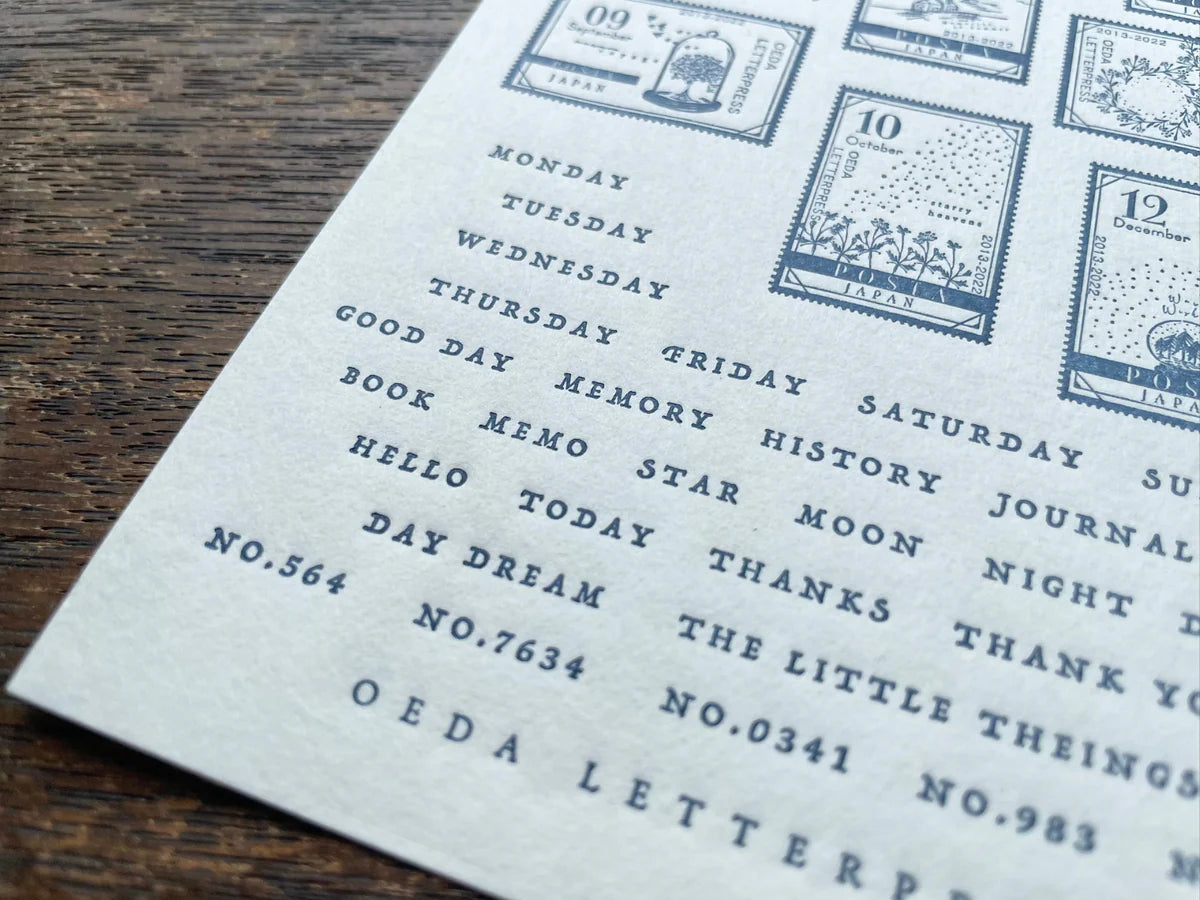 09
September
JAPAN
OEDA
LETTERPRESS
2013-2022
POSTA
JAPAN
2013-2022
OEDA
LETTERPRESS
10
October
OEDA
LETTERPRESS
starry
heavens
2013-2022
POSTA
JAPAN
12
December
2013-2022
MONDAY
TUESDAY
WEDNESDAY
THURSDAY FRIDAY SATURDAY SU
GOOD DAY MEMORY HISTORY JOURNAL
BOOK MEMO STAR MOON NIGHT D
HELLO TODAY THANKS THANK YO
DAY DREAM THE LITTLE THEINGS
NO.564 NO.7634 NO.0341 NO.983
OEDA LETTERP